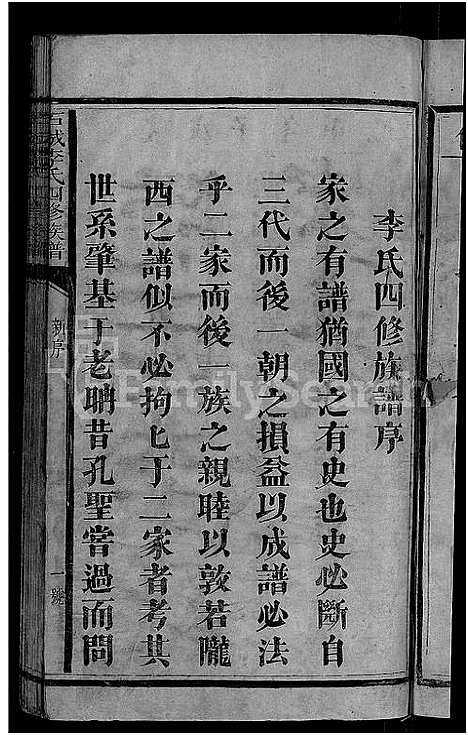 李氏四修族譜序
家之有譜猶國之有史也史必斷自
三代而後一朝之損益以成譜必法
乎二家而後一族之親睦以敦若隴
西之譜似不必拘匕于二家者考其
世系肇基于老聃昔孔聖嘗過而問
石城李氏四修族譜
新序
一號
FamilySearch